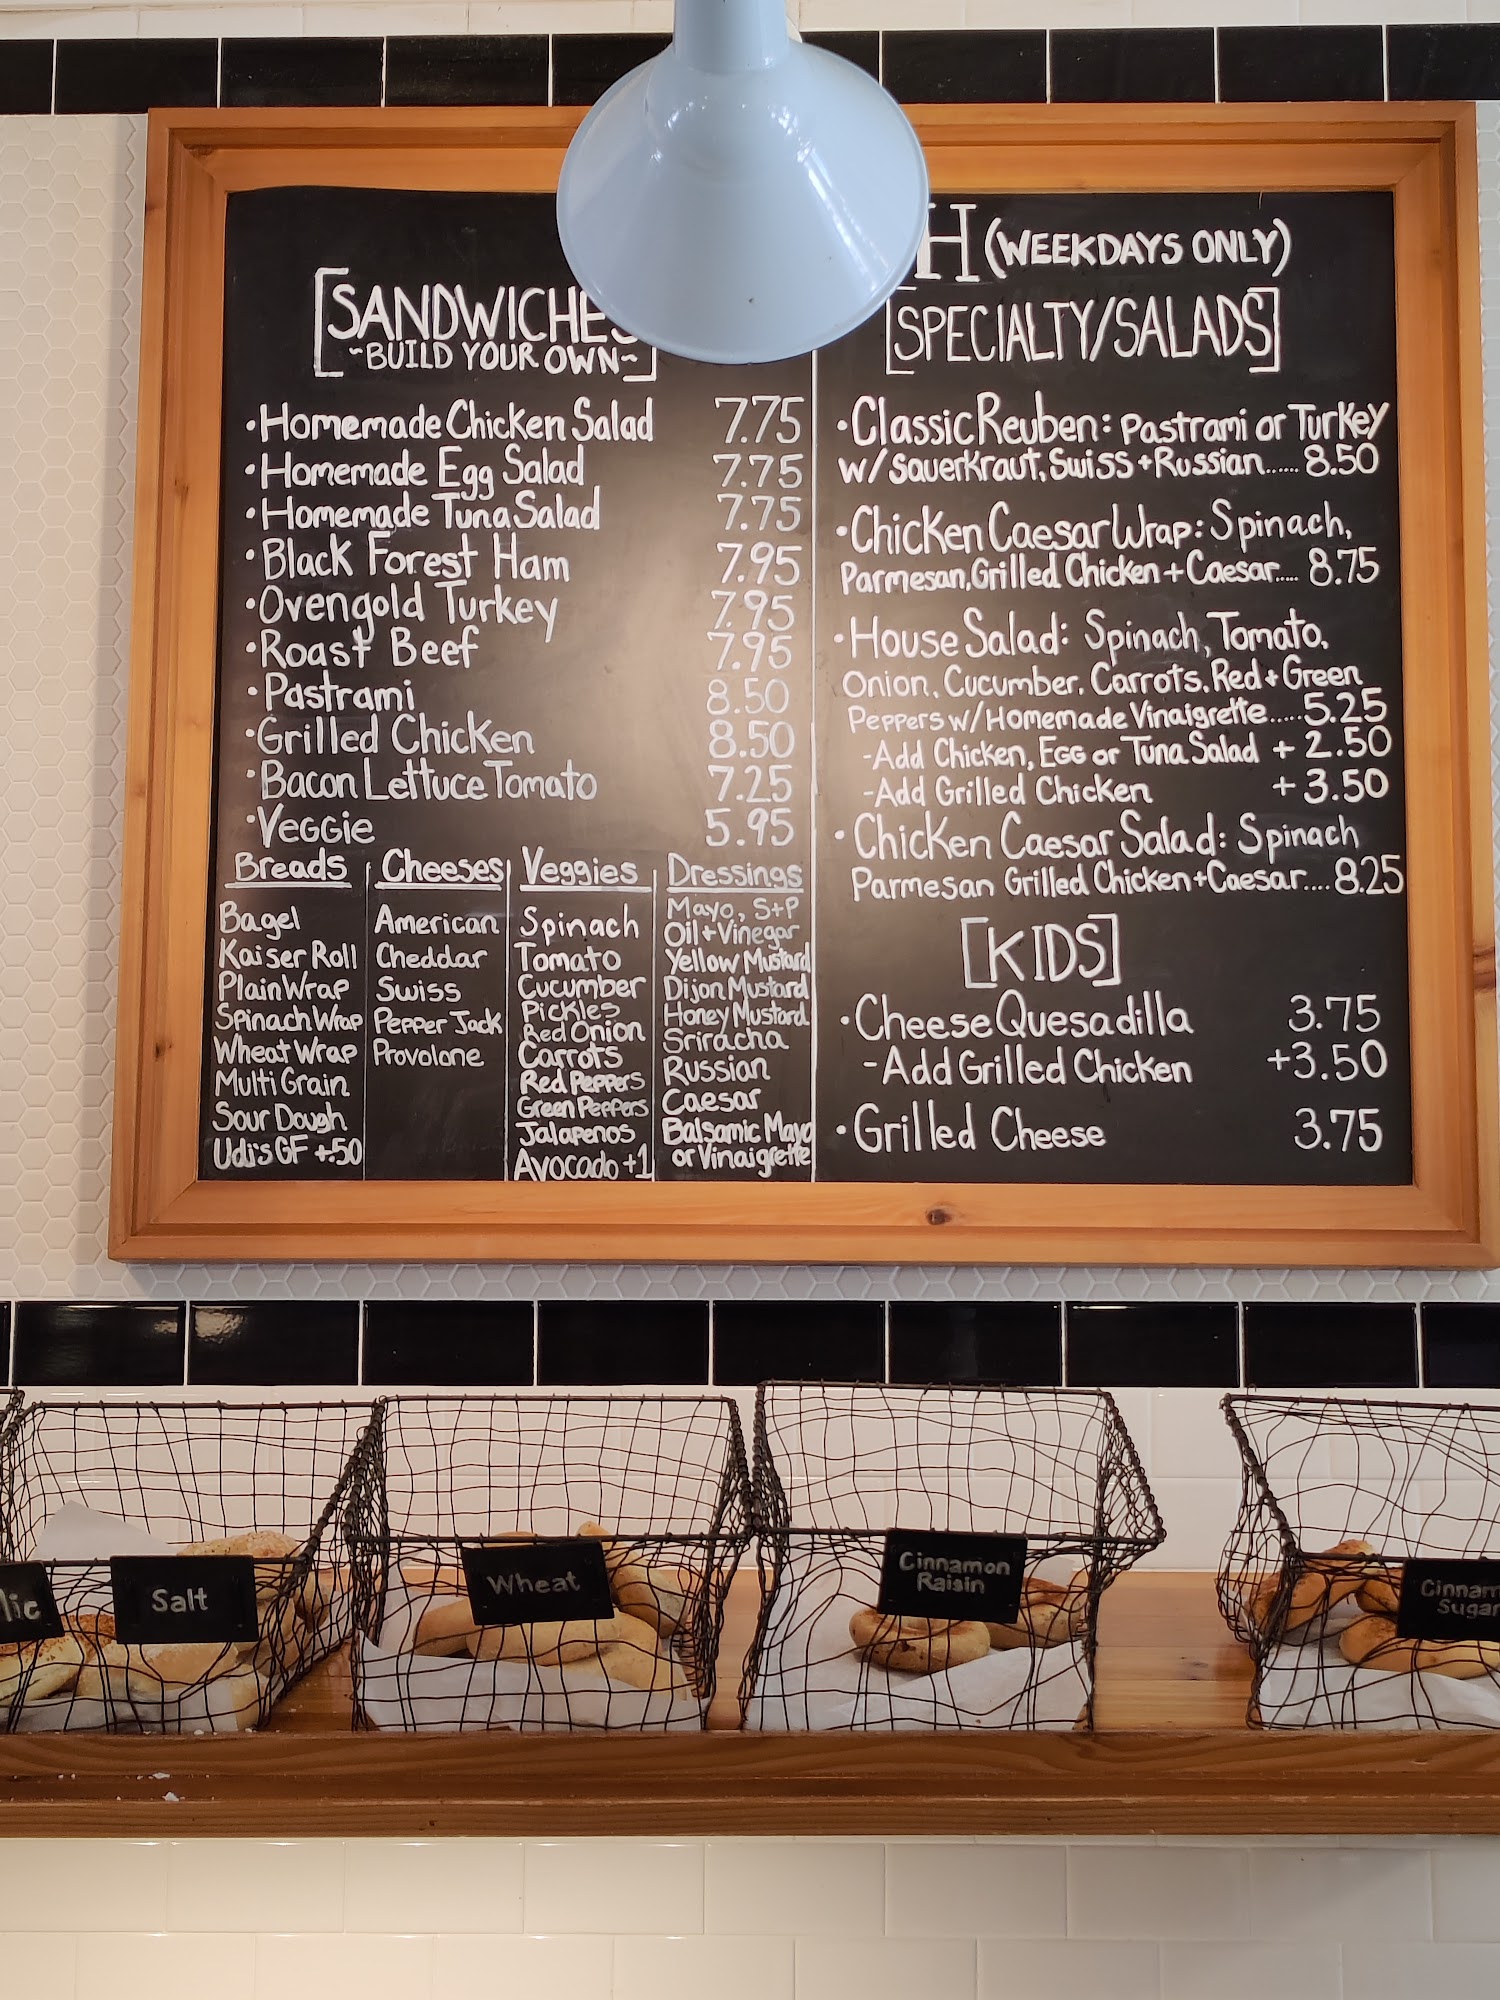 H (WEEKDAYS ONLY)
[SANDWICHES
~BUILD YOUR OWN~]
•Homemade Chicken Salad 7.75
•Homemade Egg Salad 7.75
•Homemade Tuna Salad 7.75
•Black Forest Ham 7.95
•Ovengold Turkey 7.95
•Roast Beef 7.95
•Pastrami 8.50
•Grilled Chicken 8.50
•Bacon Lettuce Tomato 7.25
•Veggie 5.95
Breads
Bagel
Kaiser Roll
Plain Wrap
Spinach Wrap
Wheat Wrap
Multi Grain
Sour Dough
Udi's GF +.50
Cheeses
American
Cheddar
Swiss
Pepper Jack
Provolone
Veggies
Spinach
Tomato
Cucumber
Pickles
Red Onion
Carrots
Red Peppers
Green Peppers
Jalapenos
Avocado +1
Dressings
Mayo, S+P
Oil+Vinegar
Yellow Mustard
Dijon Mustard
Honey Mustard
Sriracha
Russian
Caesar
Balsamic Mayo
or Vinaigrette
[SPECIALTY/SALADS]
•Classic Reuben: Pastrami or Turkey
w/ Sauerkraut, Swiss + Russian...... 8.50
•Chicken Caesar Wrap: Spinach,
Parmesan, Grilled Chicken + Caesar..... 8.75
•House Salad: Spinach, Tomato,
Onion, Cucumber, Carrots, Red + Green
Peppers w/ Homemade Vinaigrette.....5.25
-Add Chicken, Egg or Tuna Salad + 2.50
-Add Grilled Chicken + 3.50
•Chicken Caesar Salad: Spinach
Parmesan Grilled Chicken + Caesar.... 8.25
[KIDS]
•Cheese Quesadilla 3.75
-Add Grilled Chicken +3.50
•Grilled Cheese 3.75
lic
Salt
Wheat
Cinnamon
Raisin
Cinnam
Sugar